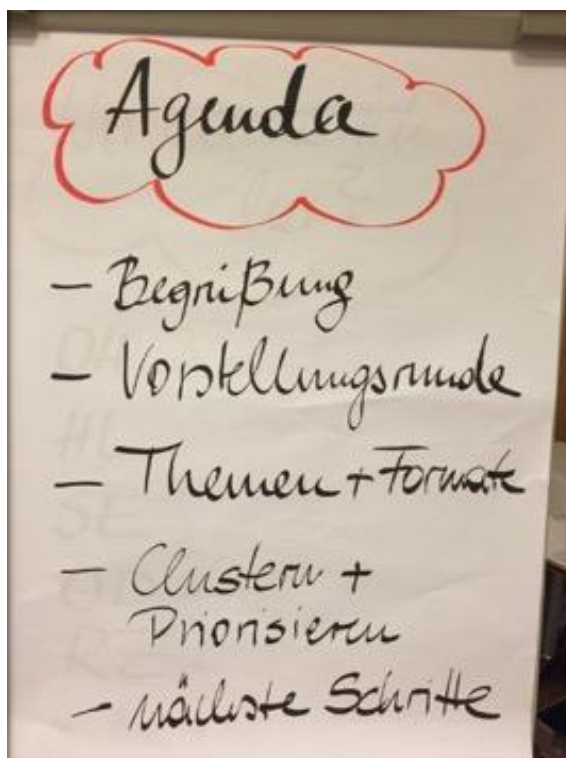 Agenda
- Begrüßung
- Vorstellungsrunde
- Themen + Formate
- Clustern +
Priorisieren
- nächste Schritte